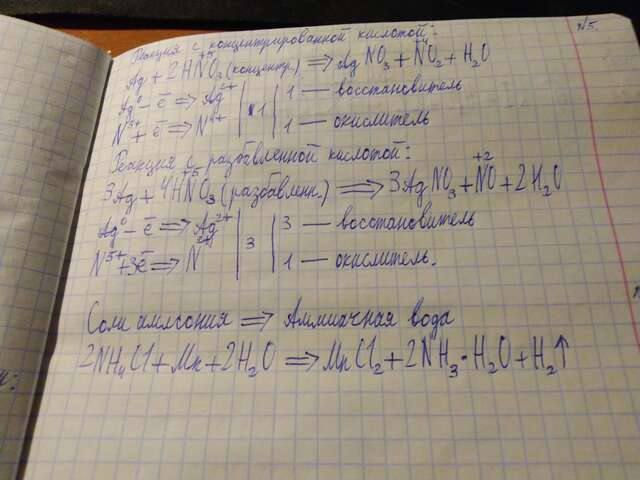 №5.
Реакция с концентрированной кислотой:
Ag + 2HN⁺⁵O₃ (концентр.) ⟹ AgNO₃ + N⁺⁴O₂ + H₂O
Ag⁰ – ē ⟹ Ag | 1 | 1 — восстановитель
N⁵⁺ + ē ⟹ N⁴⁺ | | 1 — окислитель
Реакция с разбавленной кислотой:
3Ag + 4HN⁺⁵O₃ (разбавленн.) ⟹ 3AgNO₃ + N⁺²O + 2H₂O
Ag⁰ – ē ⟹ Ag | 3 | 3 — восстановитель
N⁵⁺ + 3ē ⟹ N²⁺ | | 1 — окислитель.
Соли аммония ⟹ Аммиачная вода
2NH₄Cl + Mn + 2H₂O ⟹ MnCl₂ + 2NH₃·H₂O + H₂↑